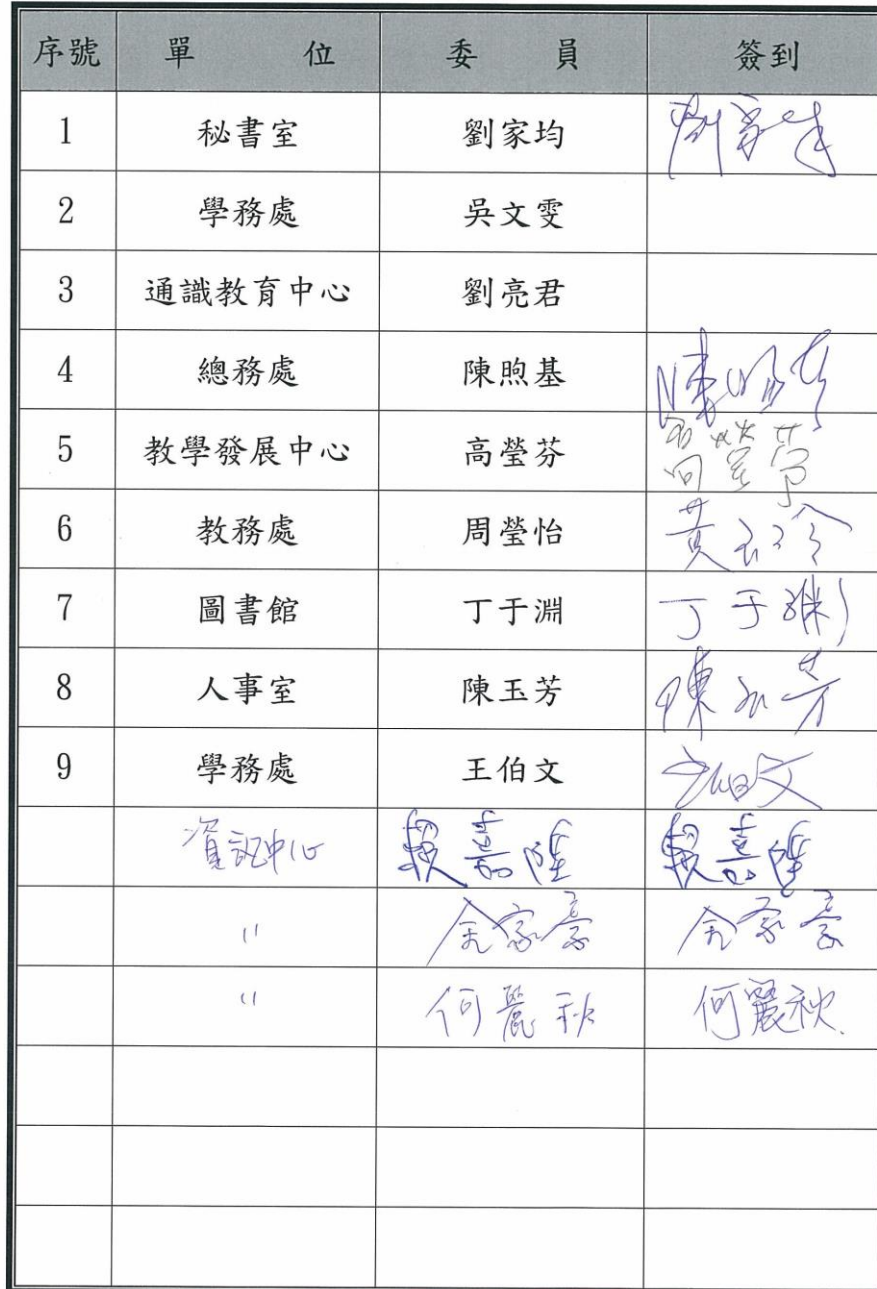 序號 單 位 委 員 簽到
1 秘書室 劉家均 劉家均
2 學務處 吳文雯
3 通識教育中心 劉亮君
4 總務處 陳煦基 陳煦基
5 教學發展中心 高瑩芬 高瑩芬
6 教務處 周瑩怡 黃玉玲
7 圖書館 丁于淵 丁于淵
8 人事室 陳玉芳 陳玉芳
9 學務處 王伯文 王伯文
資訊中心 賴嘉隆 賴嘉隆
〃 余家豪 余家豪
〃 何麗秋 何麗秋